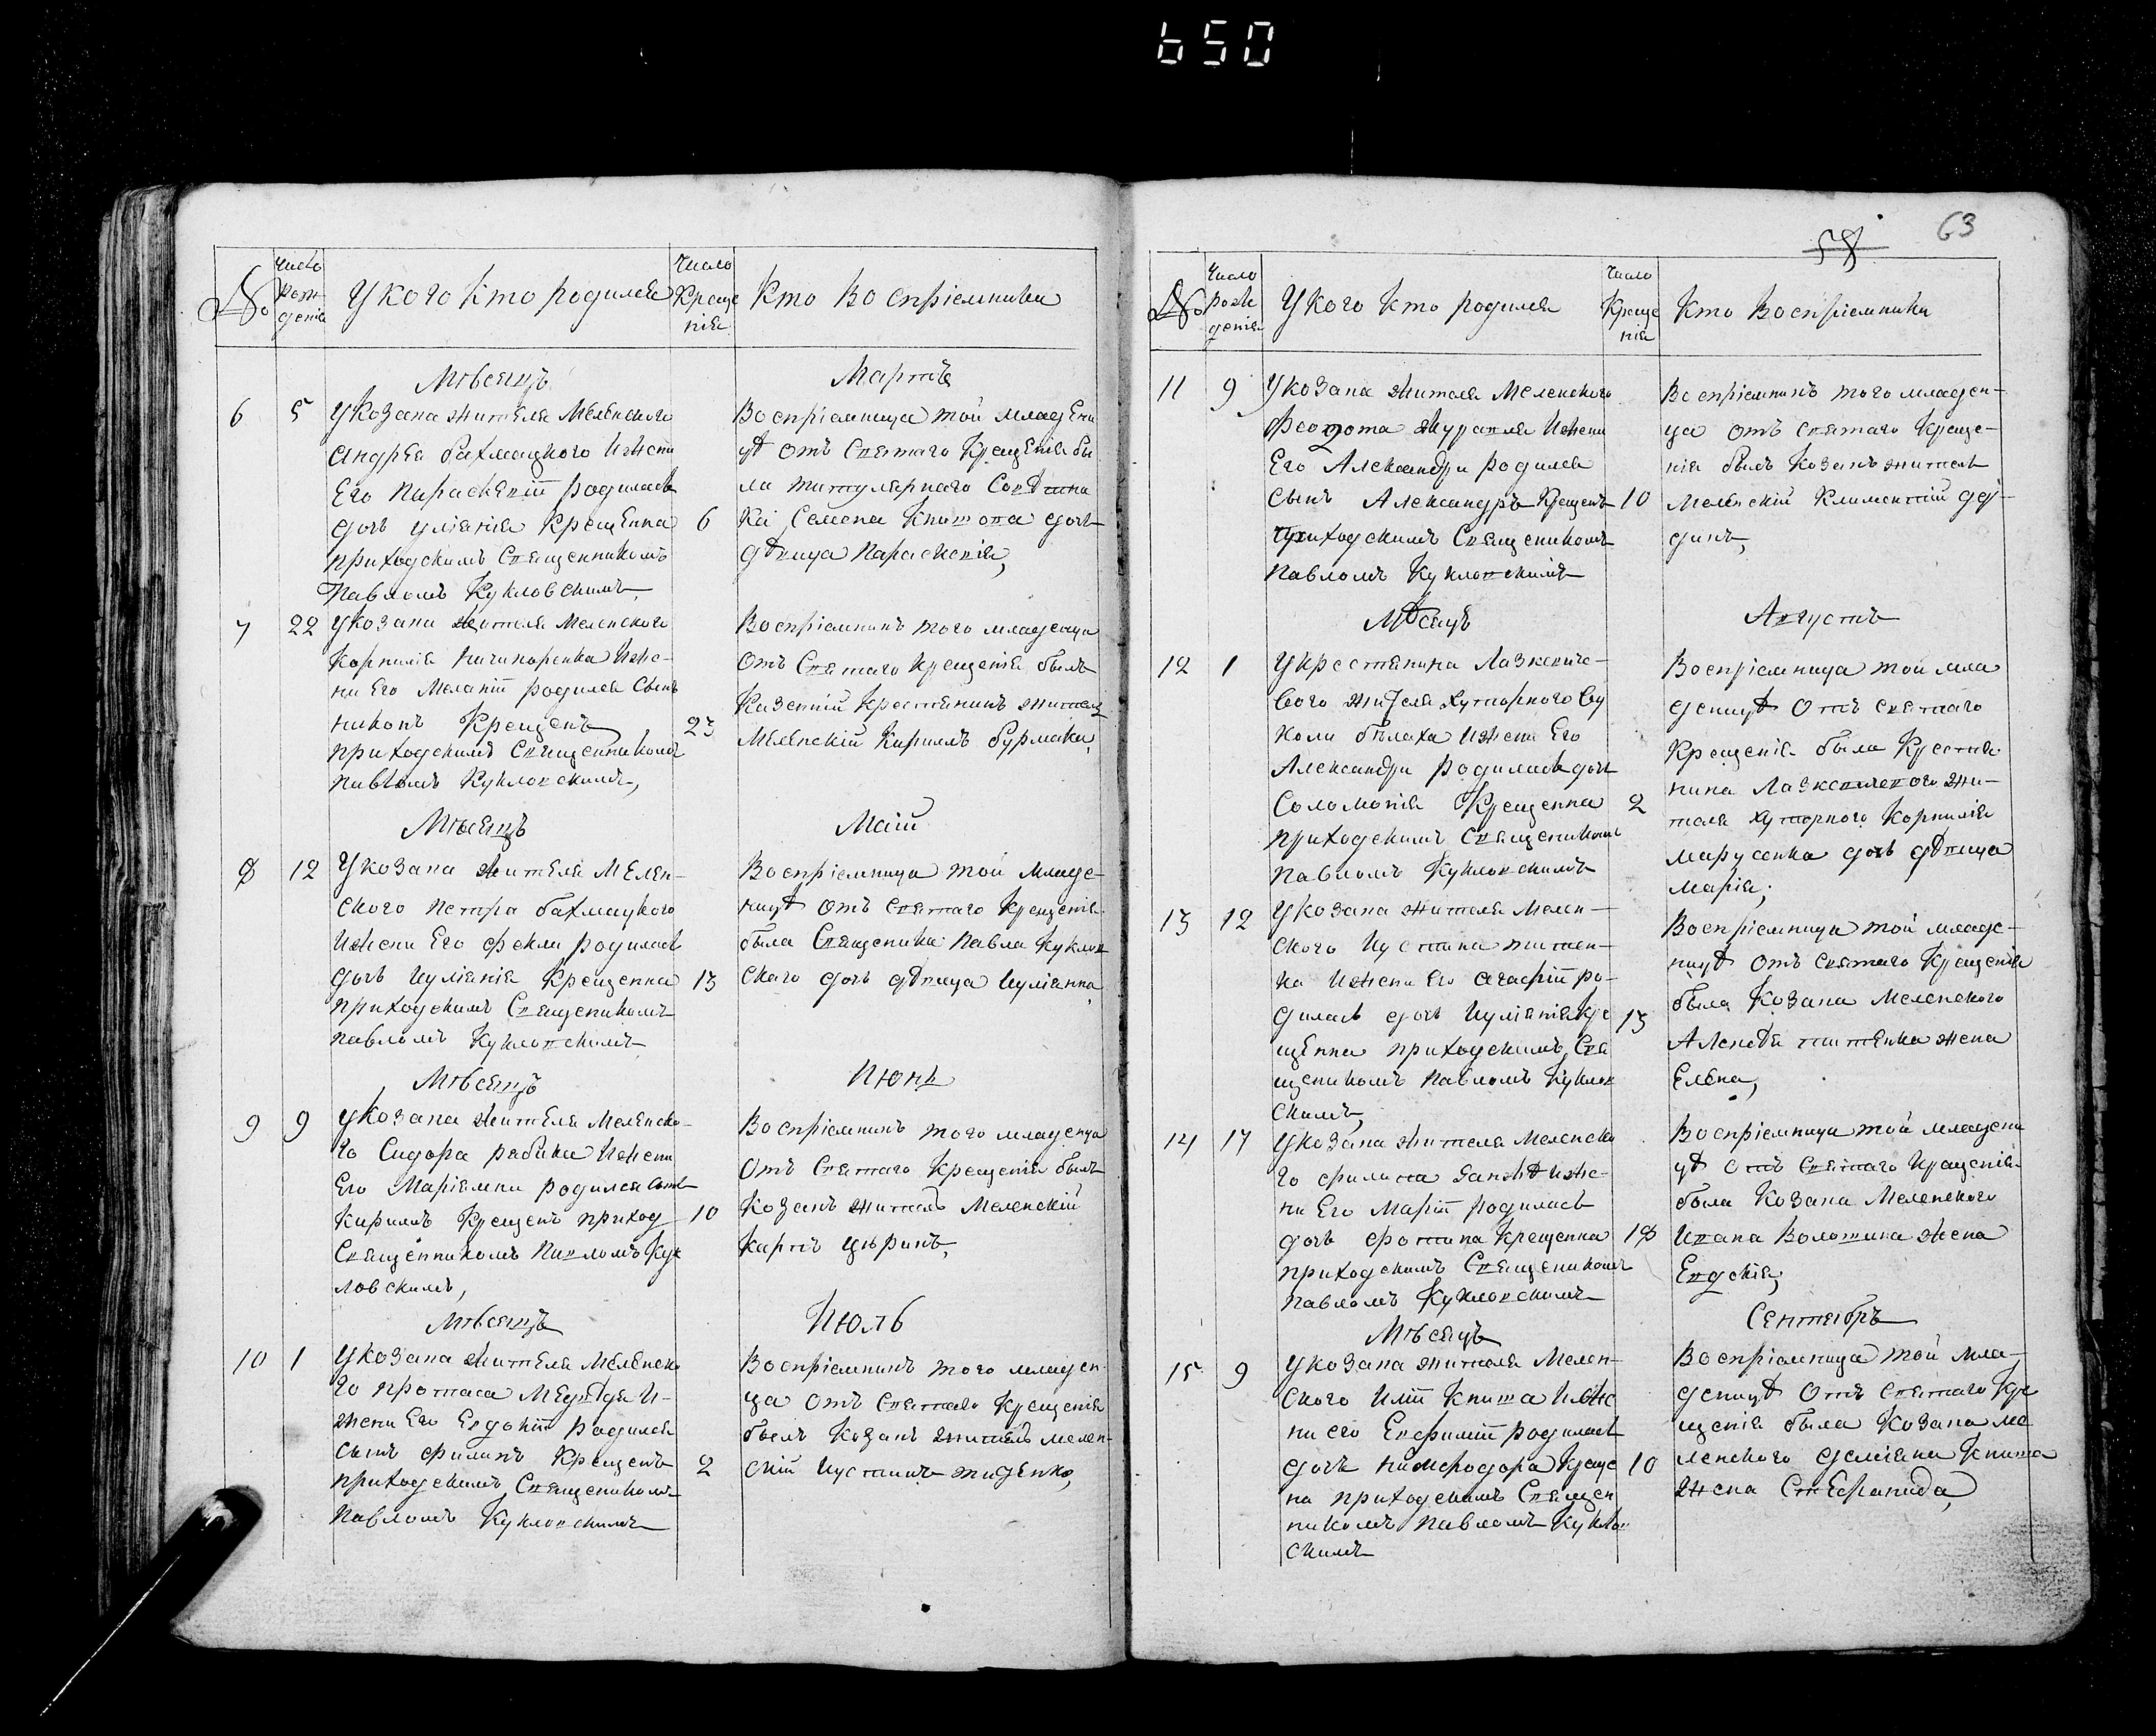 650
№
Число
рож
денія
У кого кто родился
Число
Креще
нія
Кто восприемники
Мѣсяцъ
Мартъ
6
5
У Козака жителя Меленского
Андрея бахмацкого И жени
Его Параскевіи родилась
дочь уліянія Крещенна
приходскимъ Священникомъ
Павломъ Кукловскимъ,
6
Восприемница той младени
цѣ отъ Святаго Крещенія бы
ла титулярнаго Совѣтни
ка Семена Книшова дочь
дѣвица Параскевія,
7
22
У козака жителя Меленского
Корнилія Ничипоренка И же-
ни Его Меланіи родился Сынъ
никонъ Крещенъ
приходскимъ Священникомъ
Павломъ Кукловскимъ,
23
Восприемникъ того младенца
Отъ Святаго Крещенія былъ
Казенній Крестянинъ житель
Меленскій Кириллъ бурмака,
Мѣсяцъ
Маій
8
12
У козака жителя Мелен-
ского Петра бахмацкого
И жени Его феклы родилась
дочь Иуліянія Крещенна
приходскимъ Священикомъ
павломъ Кукловскимъ
13
Восприемница той младе-
ницѣ отъ Святаго Крещенія
была Священика Павла Куклов
скаго дочь дѣвица Иуліянна,
Мѣсяцъ
Июнь
9
9
У козака жителя Меленско-
го Сидора рабика И жени
Его Маріямни родился Сынъ
Кириллъ Крещенъ приход
Священникомъ Павломъ Кук
ловскимъ,
10
Восприемникъ того младенца
Отъ Святаго Крещенія былъ
Козакъ житель Меленскій
Карпъ Цюрикъ,
Мѣсяцъ
Июль
10
1
У козака жителя Меленско
го протаса Медведя И-
жени Его Евдокіи родился
сынъ филипъ Крещенъ
приходскимъ Священикомъ
Павломъ Кукловскимъ
2
Восприемникъ того младен
ца отъ Святаго Крещенія
былъ Козакъ житель мелен-
скій Иустинъ титенко,
58
63
№
Число
рож
денія
У кого кто родился
Число
Креще
нія
Кто Восприемники
11
9
У козака жителя Меленского
Феодота журавля И жени
Его Александри родился
сынъ Александръ Крещенъ
приходскимъ Священикомъ
Павломъ Кукловскимъ
10
Восприемникъ того младен-
ца отъ святаго Креще-
нія былъ козакъ житель
меленскій Климентій дѣ-
динъ,
Мѣсяцъ
Августъ
12
1
У крестянина Лазкевиче-
вого жителя хуторного Ву
коли бѣлаха И жени Его
Александри родилась дочь
Соломонія Крещенна
приходскимъ Священикомъ
Павломъ Кукловскимъ
2
Восприемница той мла
деницѣ Отъ святаго
Крещенія была Крестя
нина Лазкевичевого жи-
теля хуторного Корнилія
марусенка дочь дѣвица
Марія;
13
12
У козака жителя Мелен-
ского Иустина титен-
ка И жени Его Агафіи ро-
дилась дочь Иуліянія Кре
щенна приходскимъ Свя
щеникомъ Павломъ Куклов
скимъ,
13
Восприемница той младе-
ницѣ отъ святаго Крещенія
была Козака Меленского
Алексѣя титенка жена
Елена,
14
17
У козака жителя Меленско
го филипа заики И же-
ни Его Маріи родилась
дочь фотина Крещенна
приходскимъ Священикомъ
Павломъ Кукловскимъ
18
Восприемница той младени
цѣ отъ Святаго Крещенія
была Козака Меленского
Ивана Волошина жена
Евдокія,
Мѣсяцъ
Сентябръ
15
9
У козака жителя Мелен-
ского Иліи Книша И же
ни его Евфиміи родилась
дочь нимфодора Креще
на приходскимъ Священ
никомъ Павломъ Куклов
скимъ
10
Восприемница той мла-
деницѣ Отъ святаго Кре
щенія была Козака ме
ленского демяна Книша
жена Стефанида,